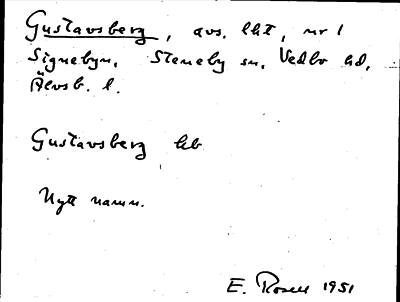 Gustavsberg, avs. lht, nr 1
Signebyn, Steneby sn, Vedbo hd,
Älvsb. l.
Gustavsberg hb
Nytt namn.
E. Rosell 1951